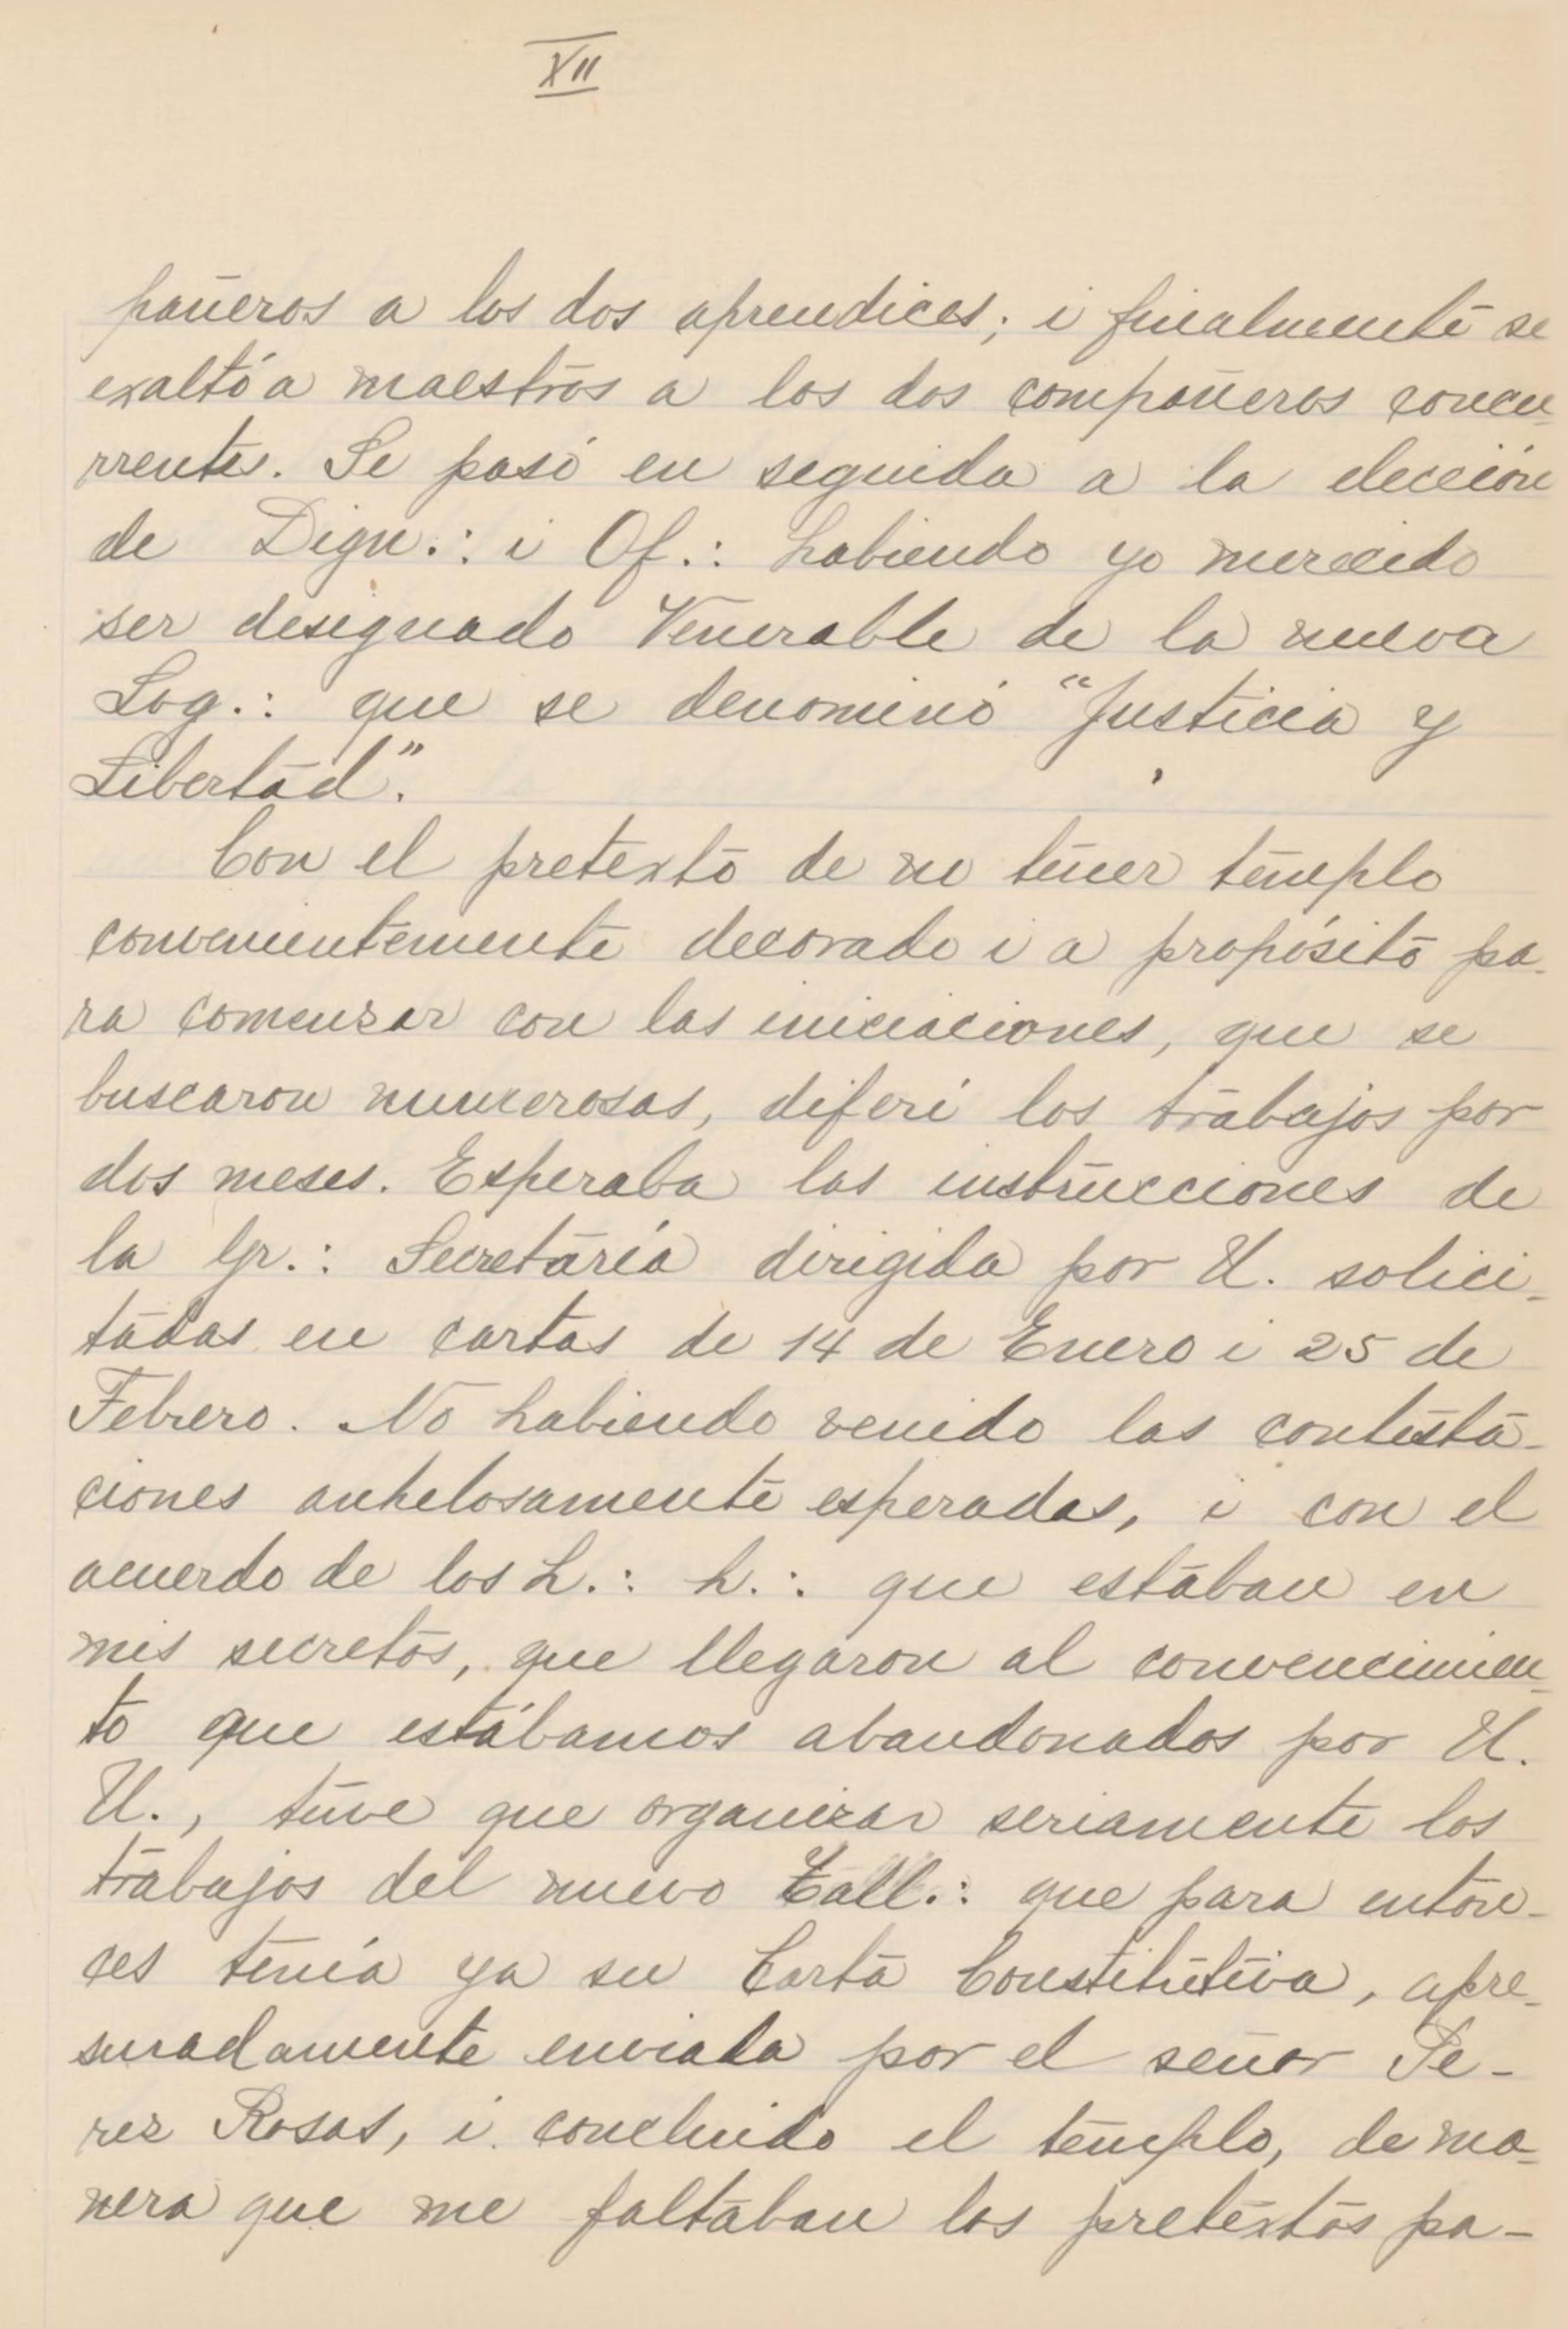 XII
pañeros a los dos aprendices; i finalmente se
exaltó a maestros a los dos compañeros concu-
rrentes. Se pasó en seguida a la elección
de Dign.: i Of.: habiendo yo merecido
ser designado Venerable de la nueva
Log.: que se denominó "Justicia y
Libertad".
Con el pretexto de no tener templo
convenientemente decorado i a propósito pa-
ra comenzar con las iniciaciones, que se
buscaron numerosas, diferí los trabajos por
dos meses. Esperaba las instrucciones de
la Gr.: Secretaría dirigida por U. solici-
tadas en cartas de 14 de Enero i 25 de
Febrero. No habiendo venido las contesta-
ciones anhelosamente esperadas, i con el
acuerdo de los h.: h.: que estaban en
mis secretos, que llegaron al convencimien-
to que estábamos abandonados por U.
U., tuve que organizar seriamente los
trabajos del nuevo Tall.: que para enton-
ces tenía ya su Carta Constitutiva, apre-
suradamente enviada por el señor Pe-
rez Rosas, i concluido el templo, de ma-
nera que me faltaban los pretextos pa-